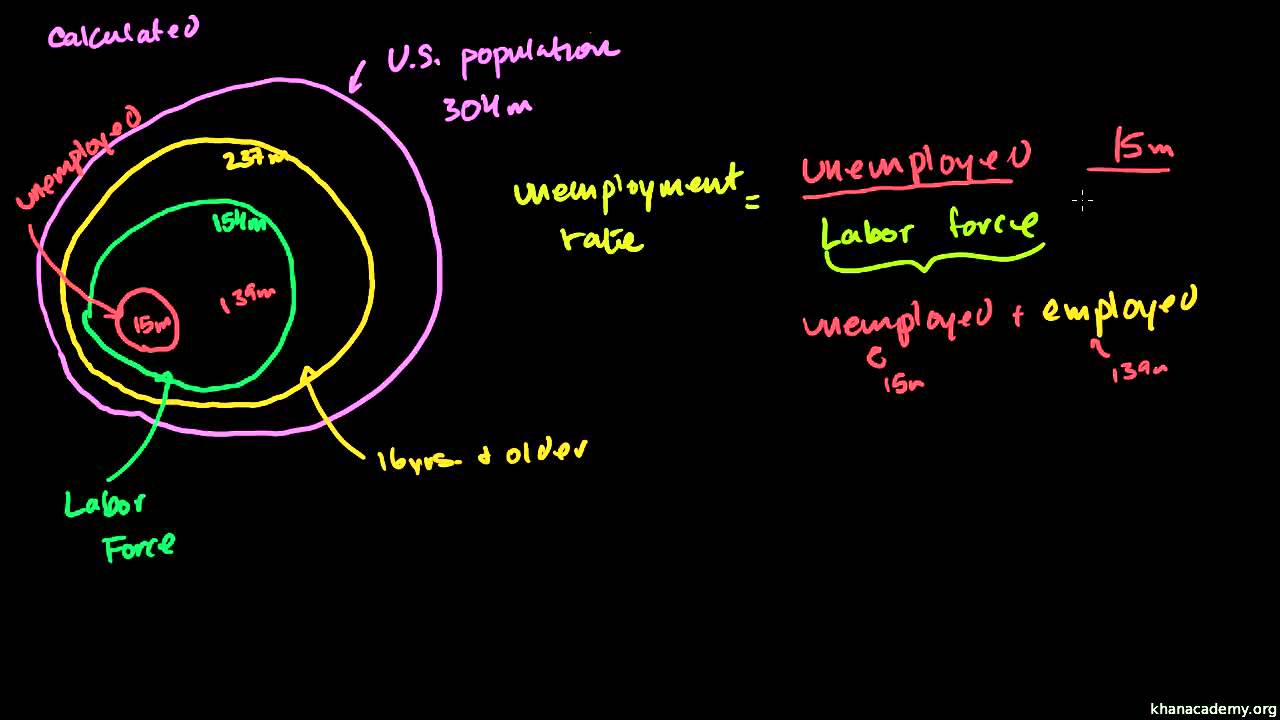 calculated
U.S. population
304m
unemployed
237m
154m
139m
15m
Labor
Force
16yrs. + older
unemployment
rate
=
unemployed
Labor force
15m
unemployed + employed
15m
139m
khanacademy.org